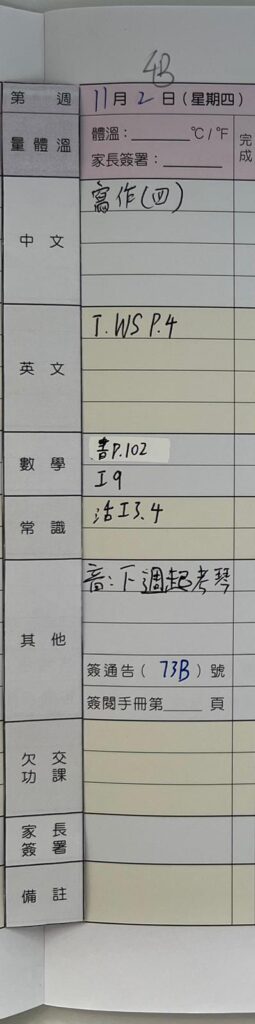 4B
第 週 11月2日(星期四)
量體溫 體溫:______℃/℉ 完成
家長簽署:______
中文 寫作(四)
英文 T. WS P.4
數學 書P.102
I9
常識 活I3.4
其他 音:下週起考琴
簽通告(73B)號
簽閱手冊第____頁
欠交功課
家長簽署
備註